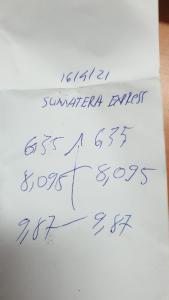 16/4/21
SUMATERA EXPRESS
6,35 635
8,095 8,095
9,87 9,87